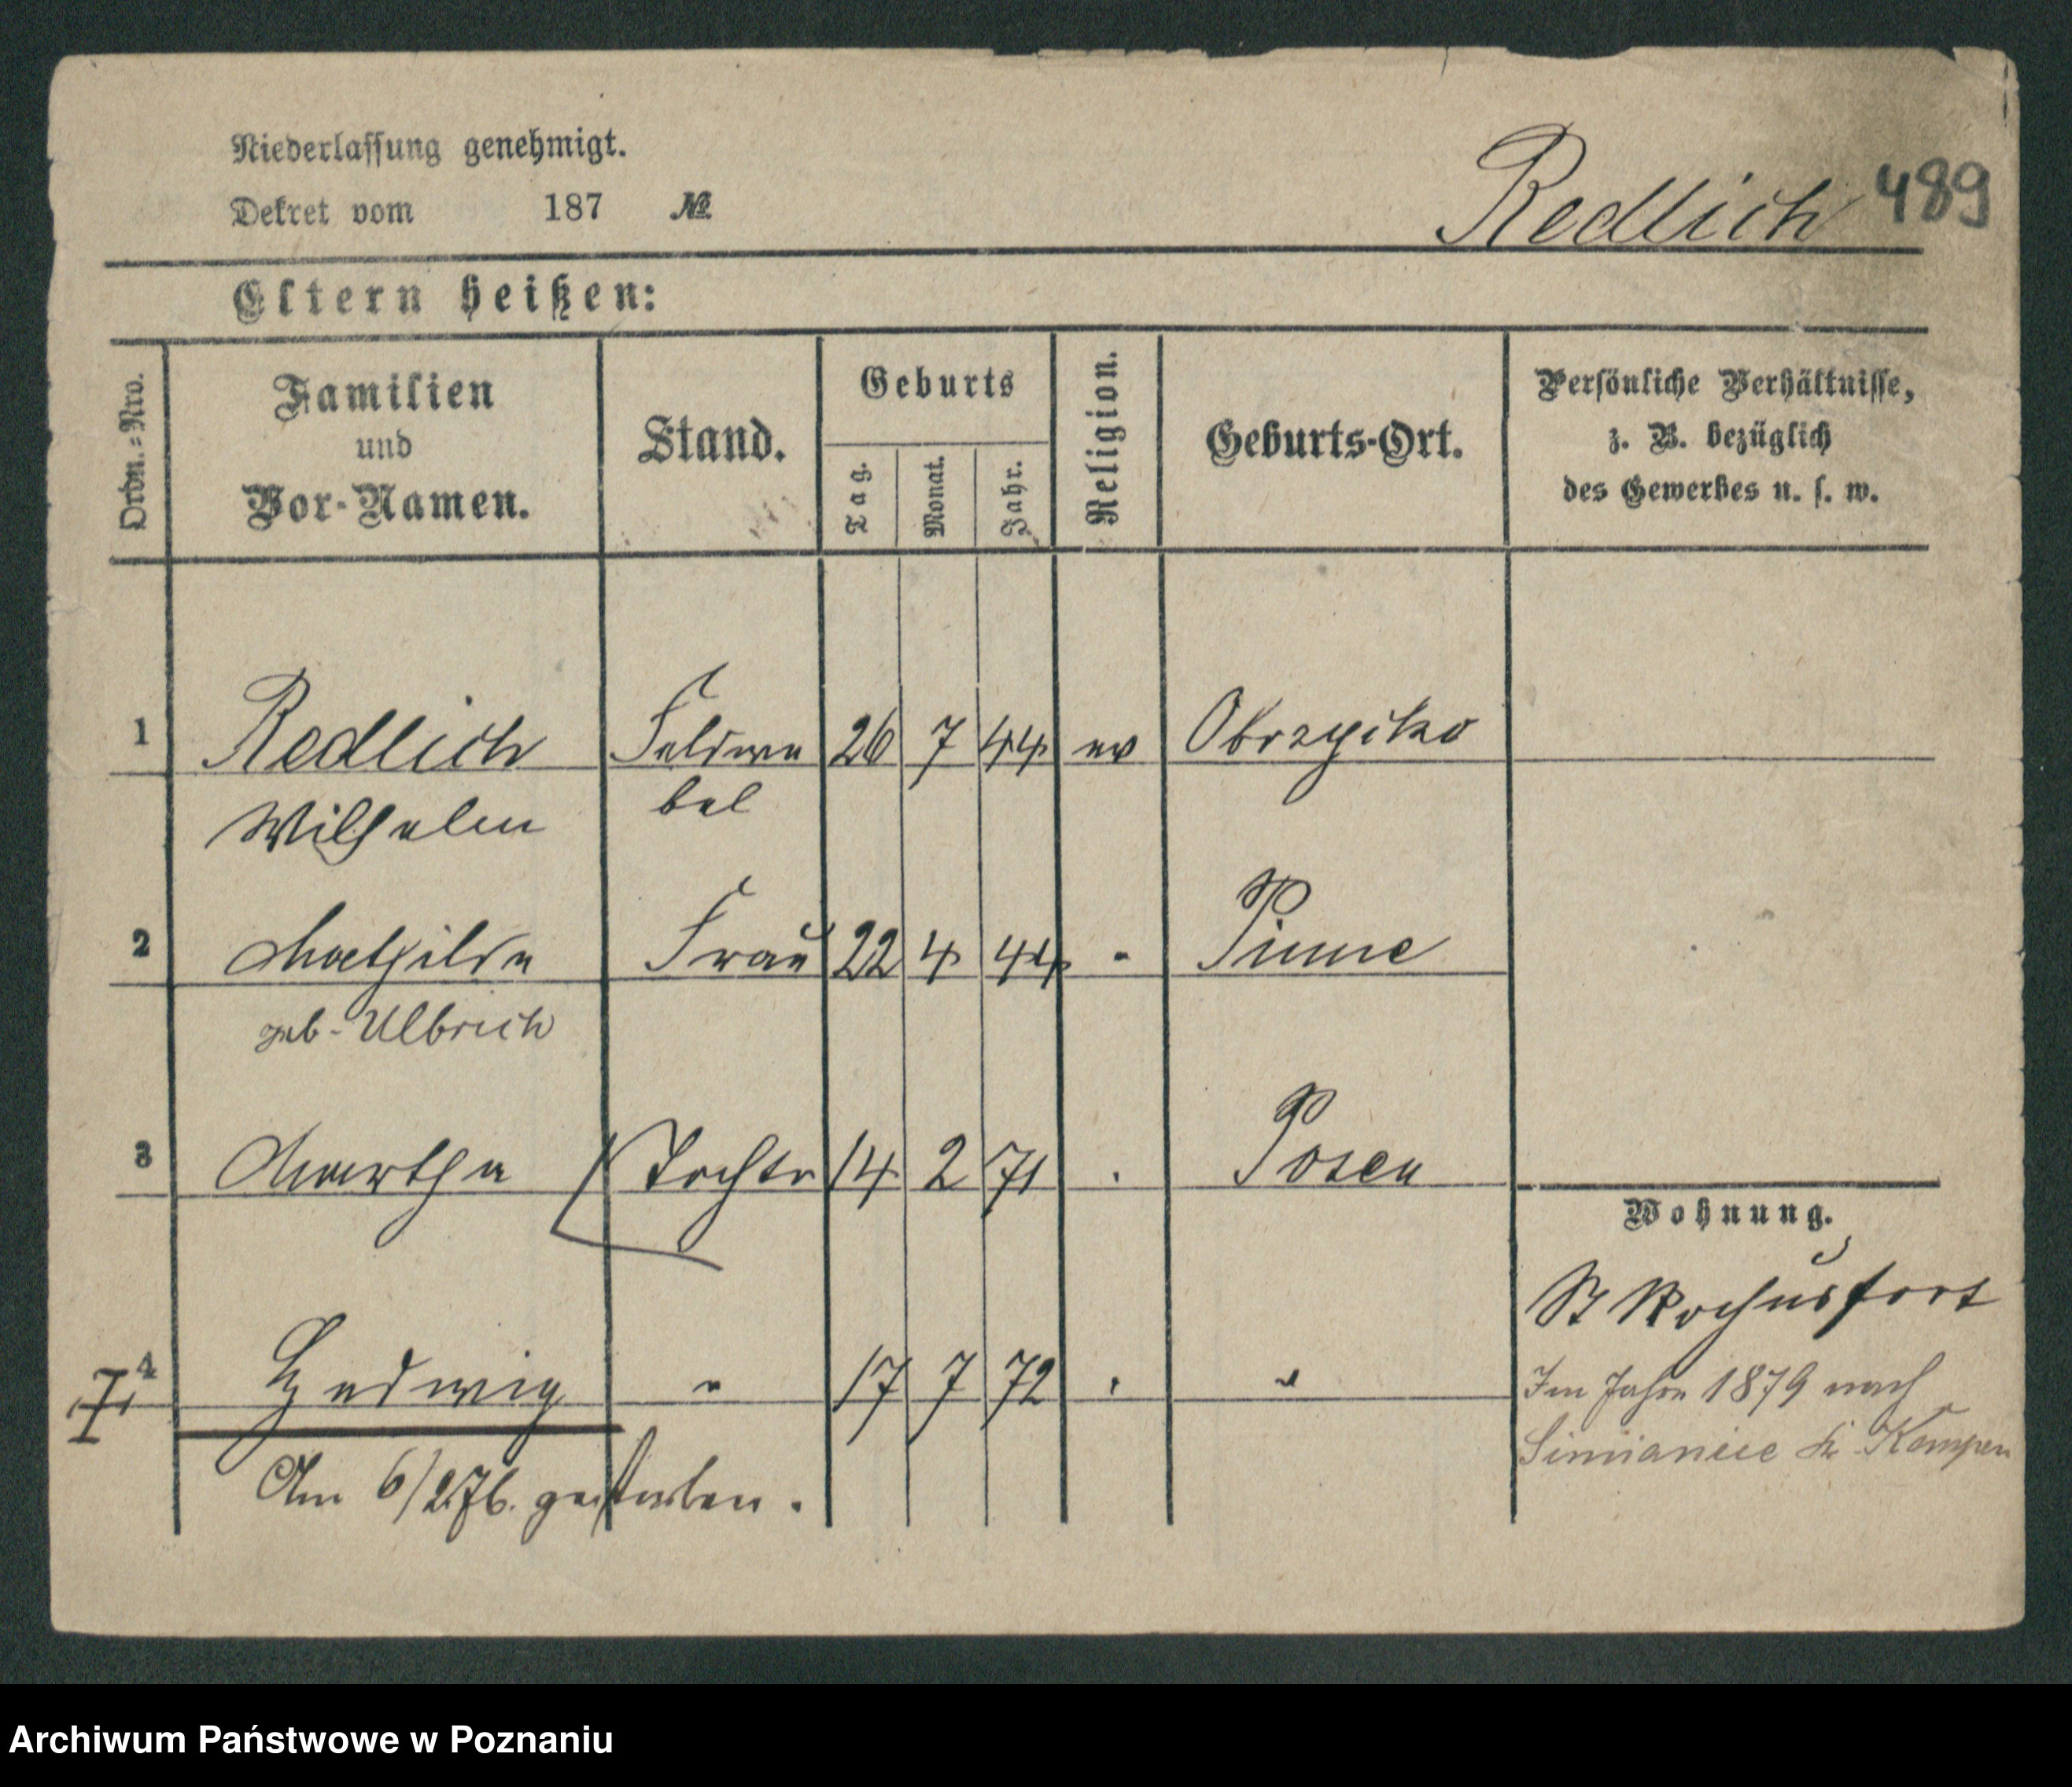 Niederlassung genehmigt.
Dekret vom 187 №
Redlich 489
Eltern heißen:
Ordn.-Nro.
Familien
und
Vor-Namen.
Stand.
Geburts
Tag.
Monat.
Jahr.
Religion.
Geburts-Ort.
Persönliche Verhältnisse,
z. B. bezüglich
des Gewerbes u. s. w.
1 Redlich Feldwe 26 7 44 ev Obrzycko
Wilhelm bel
2 Mathilde Frau 22 4 44 " Pinne
geb. Ulbrich
3 Martha Tochter 14 2 71 " Posen
Wohnung.
St Rochusfort
4 Hedwig " 17 7 72 " "
Im Jahre 1879 nach
Simianice Kr Kempen
Am 6/2 76. gestorben.
Archiwum Państwowe w Poznaniu